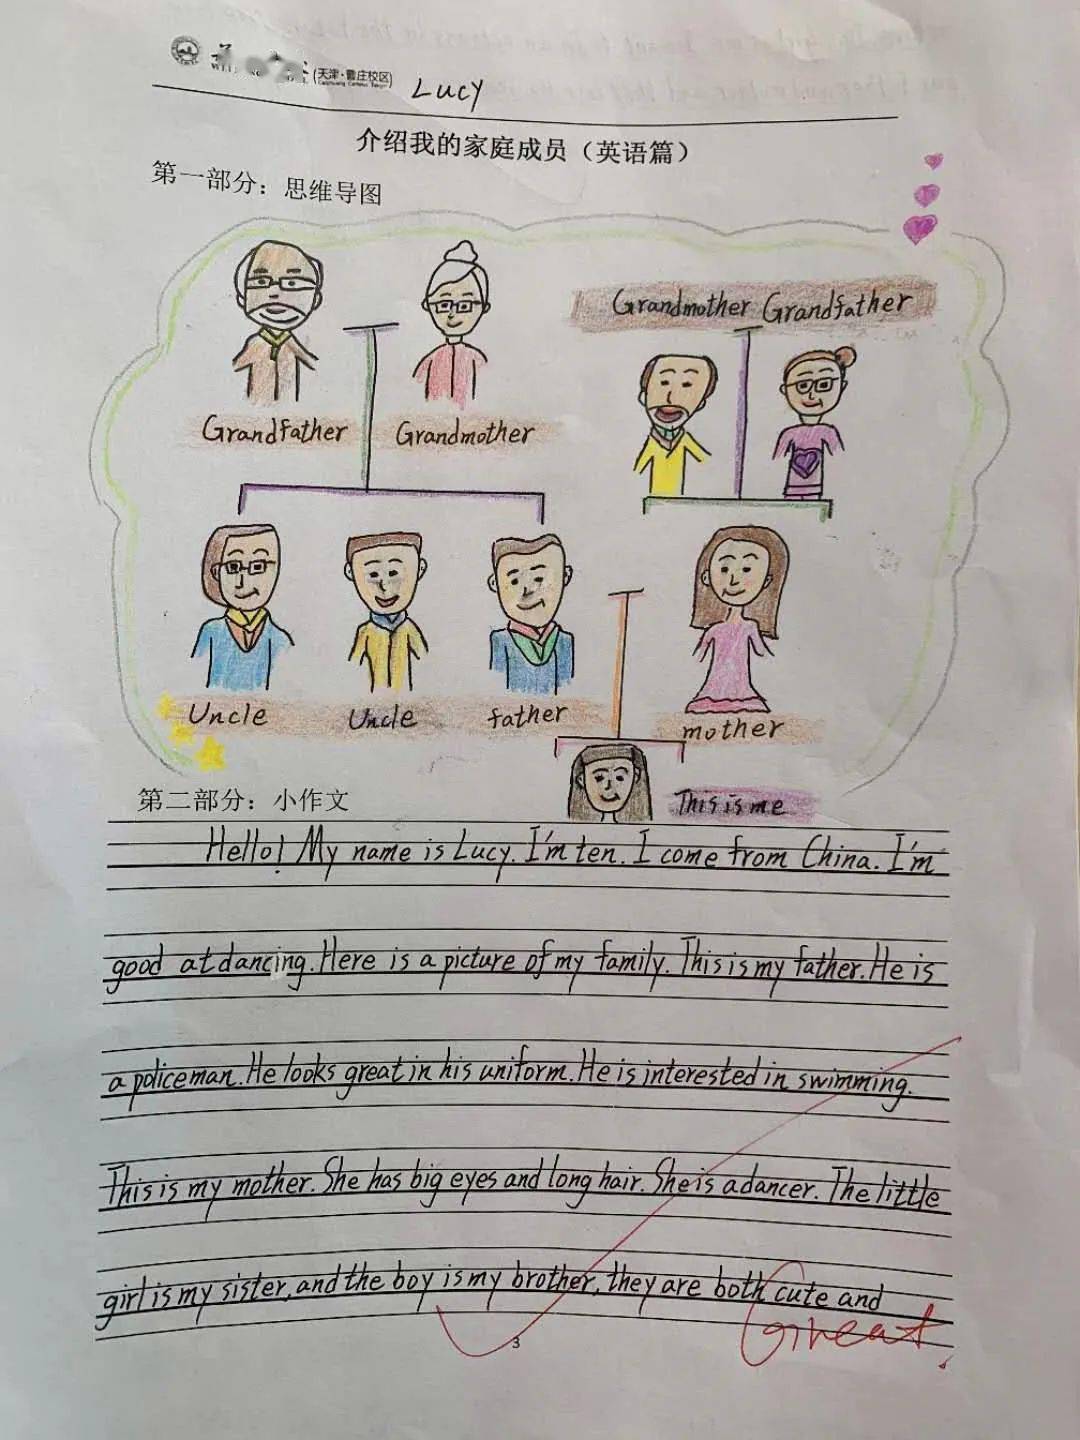 (天津·曹庄校区)
Lucy
介绍我的家庭成员（英语篇）
第一部分：思维导图
Grandmother Grandfather
Grandfather Grandmother
Uncle Uncle father mother
This is me
第二部分：小作文
Hello! My name is Lucy. I'm ten. I come from China. I'm
good at dancing. Here is a picture of my family. This is my father. He is
a policeman. He looks great in his uniform. He is interested in swimming.
This is my mother. She has big eyes and long hair. She is a dancer. The little
girl is my sister, and the boy is my brother, they are both cute and
Great.
3